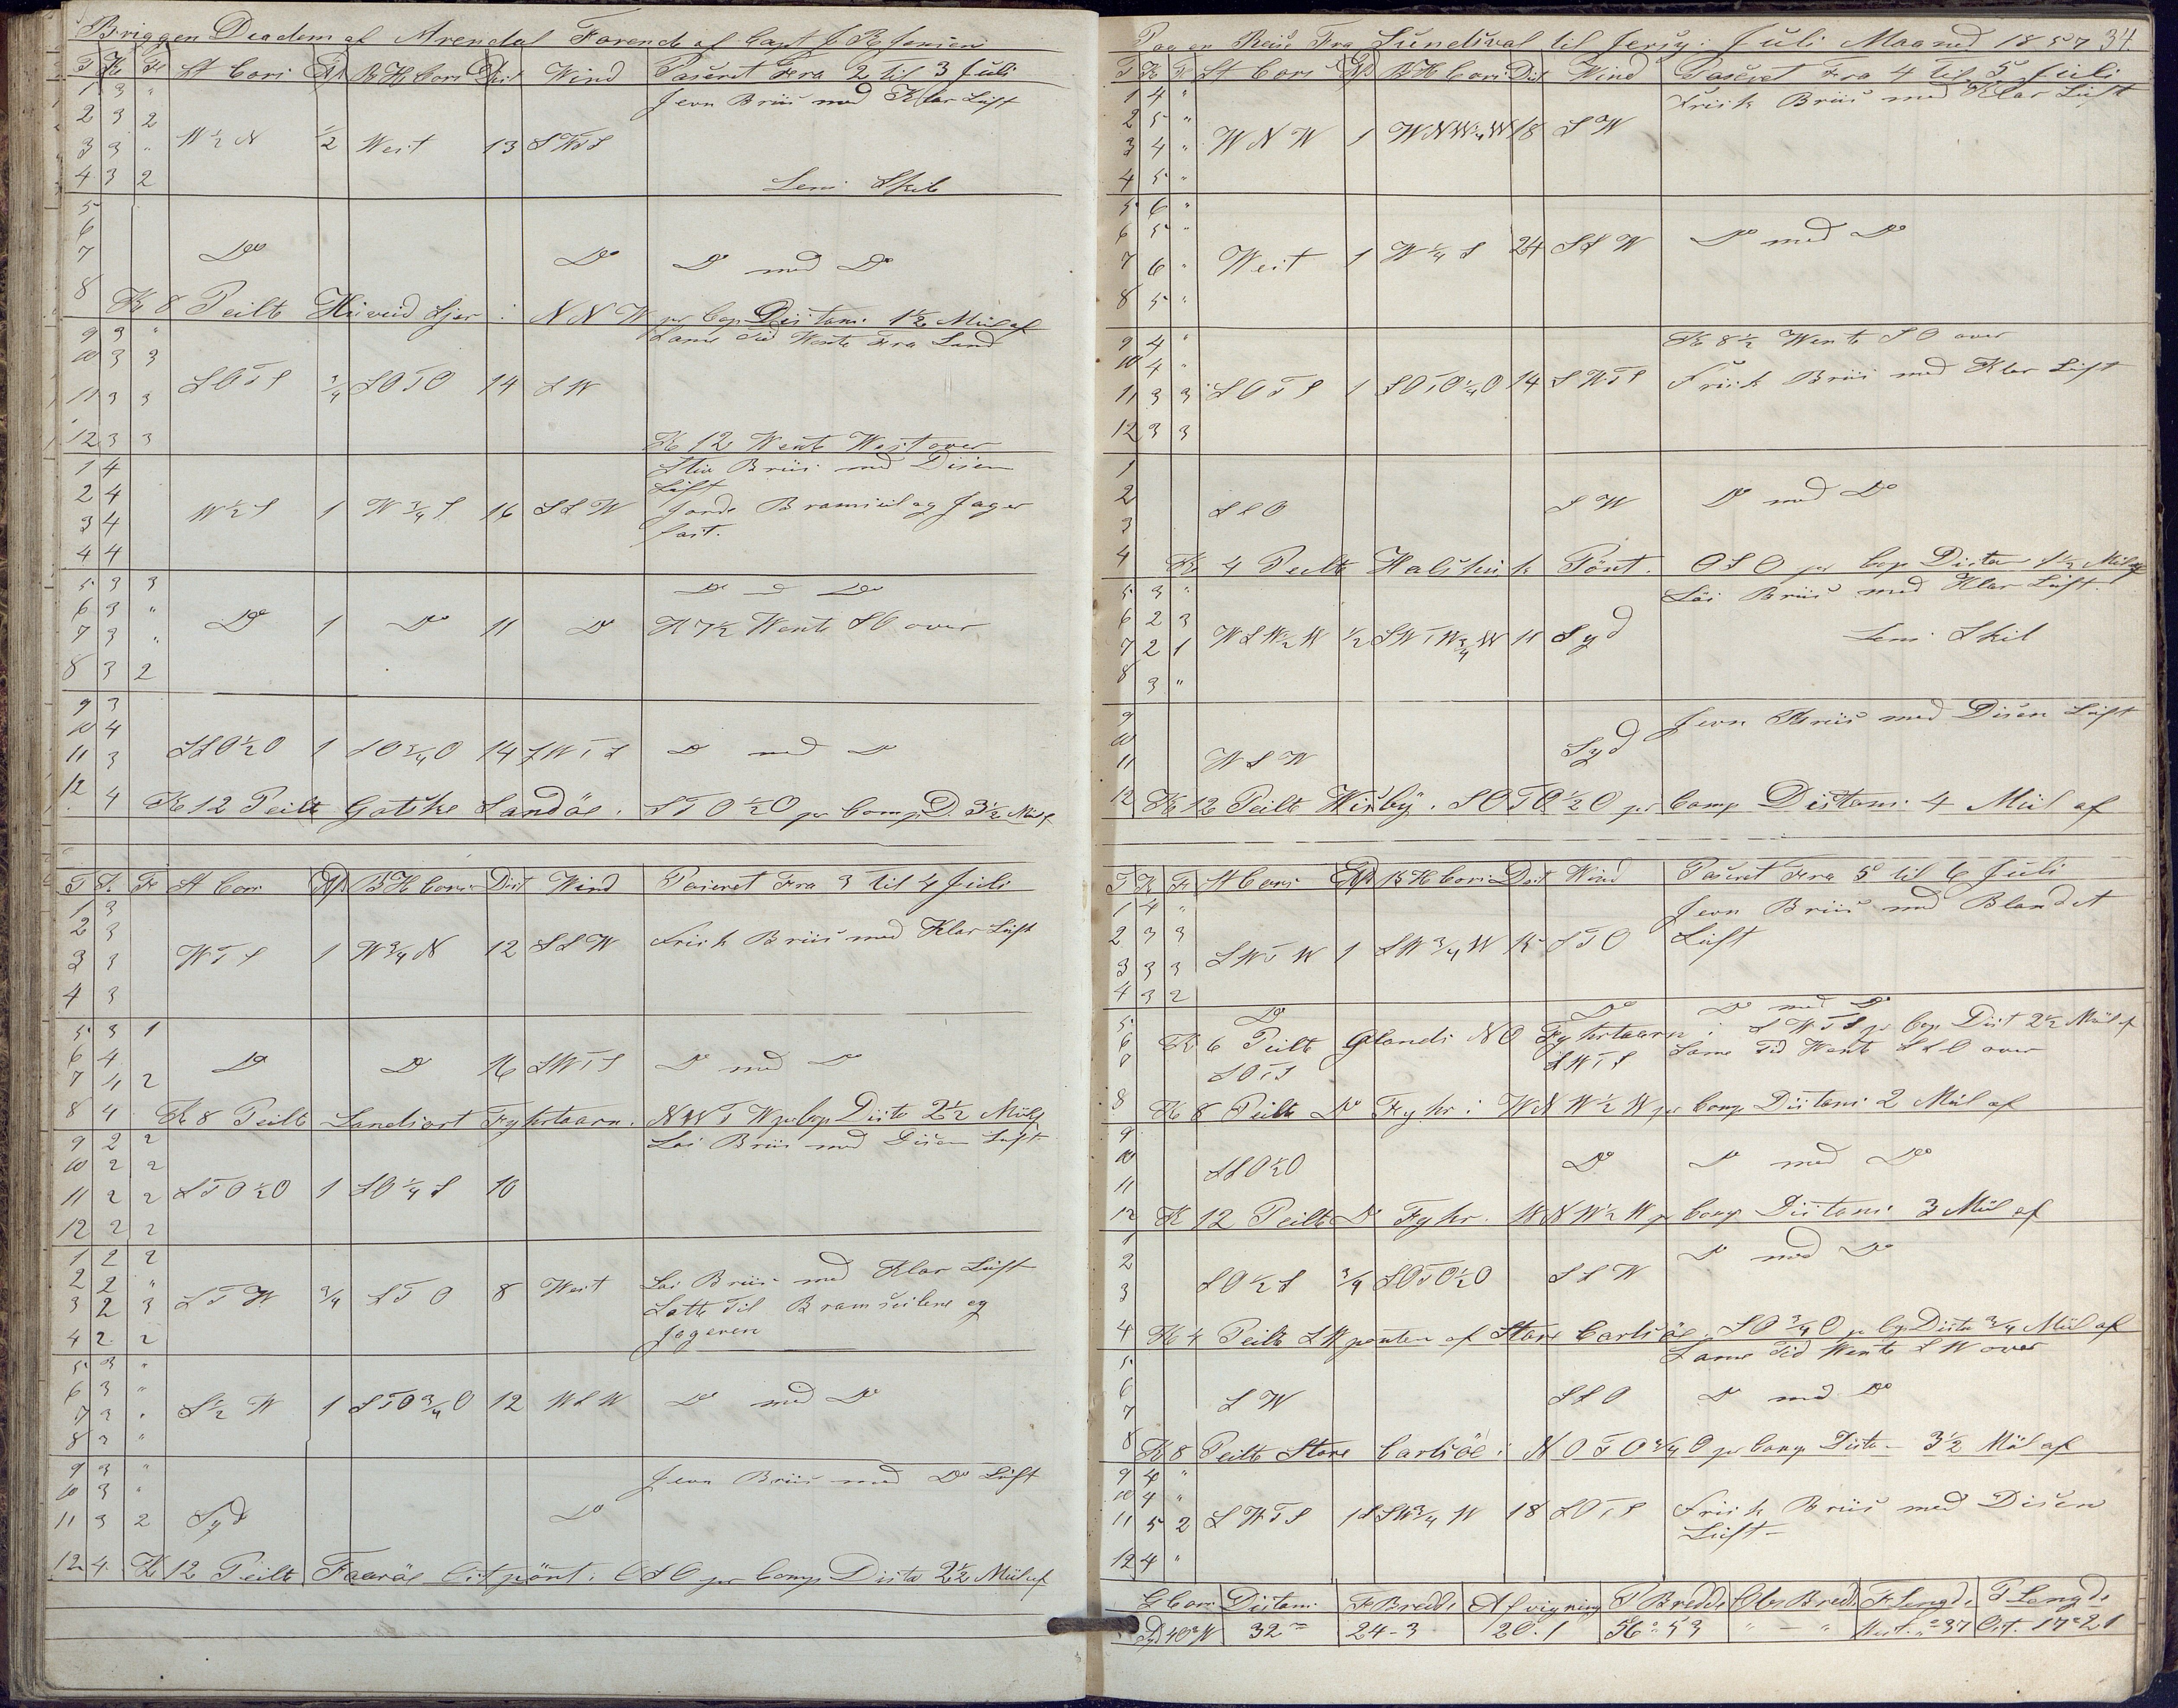 Briggen Diadem af Arendal Førende af Capt J R Jensen
T K F St Cors Afd B H Cors Dist Wind Paseret Fra 2 til 3 Juli
1 3 " Jevn Briis med Klar Luft
2 3 2
3 3 " W ½ N ½ West 13 SWTS
4 3 2 Lens Skib
5
6
7 Do Do Do med Do
8 K 8 Peilte i NNW pr Cop Distans 1½ Miil af
9 3 " Same Tid Wente Fra Land
10 3 3
11 3 3 SOTS ¾ SOTO 14 SW
12 3 3 K 12 Wente West over
1 4 Stiv Briis med Disen
2 4 Luft
3 4 W ½ S 1 W ¾ S 16 SSW Jorde Bramseil og Jager
4 4 fast.
5 3 3 Do Do
6 3 " Do 1 Do 11 Do K 7½ Wente SO over
7 3 "
8 3 2
9 3
10 4
11 3 SSO½O 1 SO¾O 14 SWTS Do med Do
12 4 K 12 Peilte Gotske Sandöe i STO½O pr Comp D. 3½ Miil af
T K F St Cors Afd B H Cors Dist Wind Paseret Fra 3 til 4 Juli
1 3
2 3 Frisk Briis med Klar Luft
3 3 WTS 1 W¾N 12 SSW
4 3
5 3 1
6 4 Do Do 16 SWTS Do med Do
7 4 2
8 4 K 8 Peilte Landsort Fyhrtaarn i NWTW pr Cop Dista 2½ Miil af
9 2 2 Löi Briis med Disen Luft
10 2 2
11 2 2 STO½O 1 SO¼S 10
12 2 2
1 2 2
2 2 " Löi Briis med Klar Luft
3 2 3 STW ¾ STO 8 West Satte Til Bramseilene og
4 2 2 Jageren
5 3 "
6 3 "
7 3 " S½W 1 STO¾O 12 WSW Do med Do
8 3 "
9 3 " Jevn Briis med Do Luft
10 3 "
11 3 2 Syd Do
12 4 K 12 Peilte Faaröe Ostpönt i OSO pr Comp Dista 2½ Miil af
Paa en Reise Fra Sundsval til Jersy i Juli Maaned 1857 34.
T K F St Cors Afd B H Cors Dist Wind Paseret Fra 4 til 5 Juli
1 4 " Frisk Briis med Klar Luft
2 5 "
3 4 " WNW 1 WNW¾W 18 SW
4 5 "
5 6 "
6 5 " Do med Do
7 6 " West 1 W¼S 24 SSW
8 5 "
9 4 " K 8½ Wente SO over
10 4 " Frisk Briis med Klar Luft
11 3 3 SOTS 1 SOTO¼O 14 SWTS
12 3 3
1
2 SSO SW Do med Do
3
4 K 4 Peilte Halshuk Pönt i OSO pr Cop Distan 1½ Miil af
5 3 " Löi Briis med Klar Luft
6 2 3
7 2 1 WSW½W ½ SWTW¾W 11 Syd Lens Skib
8 3 "
9 Jevn Briis med Disen Luft
10
11 WSW Syd
12 K 12 Peilte Wisby i SOTO½O pr Comp Distans 4 Miil af
T K F St Cors Afd B H Cors Dist Wind Paseret Fra 5 til 6 Juli
1 4 " Jevn Briis med Blandet
2 3 3 Luft
3 3 3 SWTW 1 SW¾W 15 STO
4 3 2
5 Do Do Do med Do
6 K 6 Peilte Ølands NO Fyhrtaarn i SWTS pr Cop Dist 2½ Miil af
7 SOTS SWTS Same Tid Wente SSO over
8 K 8 Peilte Do Fyhr i WNW½W pr Comp Distans 2 Miil af
9
10 SSO½O Do Do med Do
11
12 K 12 Peilte Do Fyhr i WNW½W pr Comp Distans 3 Miil af
1
2 Do med Do
3 SO½S ¾ SOTO½O SSW
4 K 4 Peilte SW ponten af Store Carlsöe i SO¾O pr Cop Dista ¾ Miil af
5 Same Tid Wente SW over
6
7 SW SSO Do med Do
8 K 8 Peilte Store Carlsöe i NOTO¾O pr Comp Dista 3½ Miil af
9 4 "
10 4 "
11 5 2 SWTS 1 SSW¾W 18 SOTS Frisk Briis med Disen
12 4 " Luft
G Cors Distans F Bredde Afvigning P Bredde Obs Bred F Lengde P Lengde
Syd 40° W 32 m 24-3 20.1 56° 53 " - " West. " 37 Ost. 17° 21